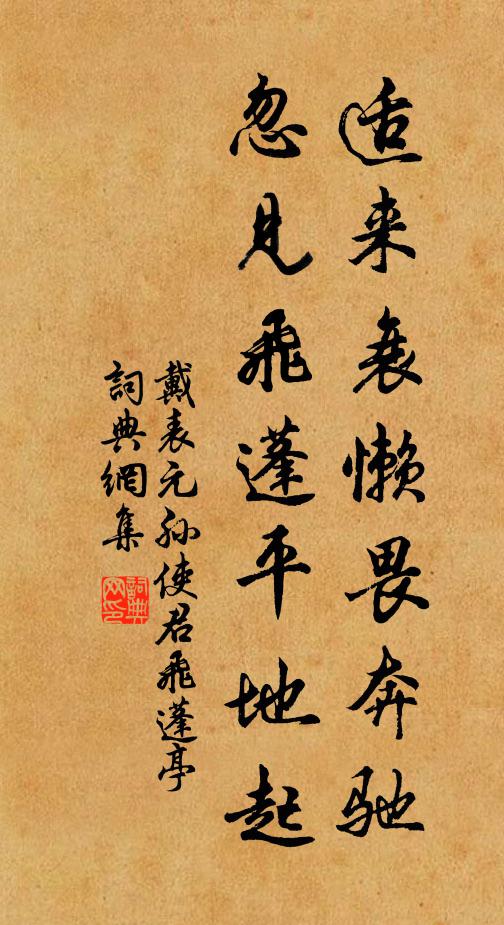 适来衰懒畏奔驰
忽见飛蓬平地起
戴表元孙使君飛蓬亭
詞典網集
詞典網印